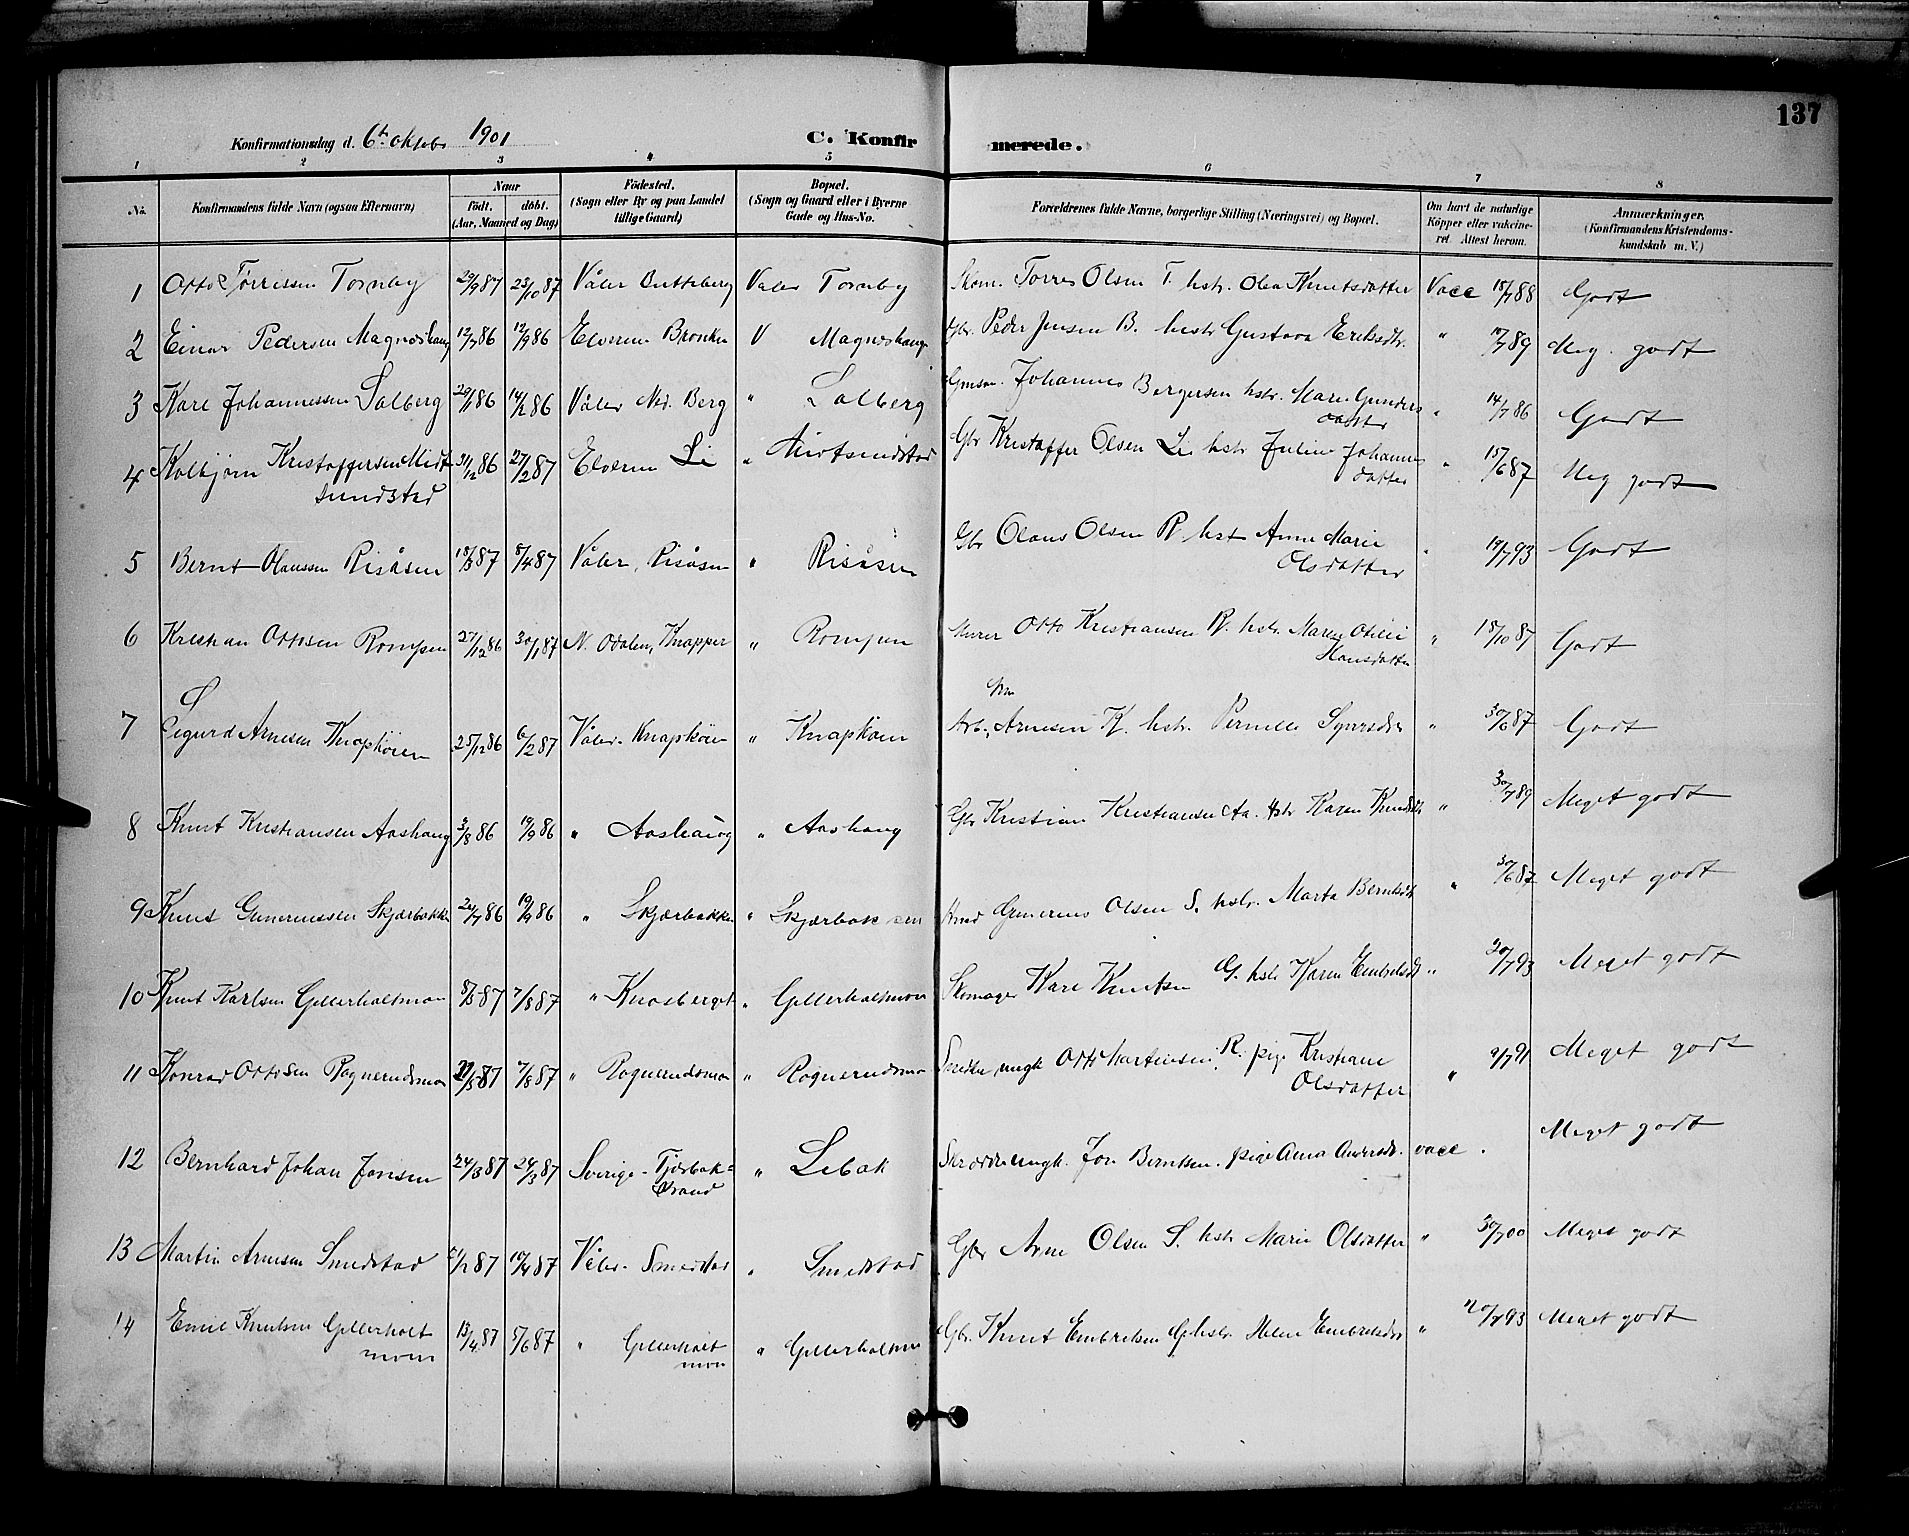 137
Konfirmationsdag d. 6te Oktober 1901 C. Konfirmerede.
1 2 3 4 5 6 7 8
No. Konfirmandens fulde Navn (ogsaa Efternavn) Naar Födt. döbt. (Aar, Maaned og Dag) Födested. (Sogn eller By og paa Landet tillige Gaard) Bopæl. (Sogn og Gaard eller i Byerne Gade og Hus-No.) Forældrenes fulde Navne, borgerlige Stilling (Næringsvei) og Bopæl. Om havt de naturlige Köpper eller vakcineret. Attest herom. Anmærkninger. (Konfirmandens Kristendomskundskab m. V.)
1 Otto Törrissen Tornby 29/9 87 23/10 87 Våler Butteberg Våler Tornby Skom. Torres Olsen T. hstr. Olea Knutsdatter Vacc 15/7 88 Godt
2 Einar Pedersen Magneshaug 12/7 86 12/9 86 Elverum Bronken V Magneshaug Gbr. Peder Jensen B. hustr Gustava Eriksdtr. " 89 Meg. godt
3 Karl Johannessen Solberg 86 14/2 86 Våler Ned. Berg " Solberg Gmsm. Johannes Bergersen hstr. Mari Gunders
datter " 14/7 86 Godt
4 Kolbjörn Kristoffersen Midt
sundstad 31/12 86 27/2 87 Elverum Li " Midtsundstad Gbr Kristoffer Olsen Li hstr Juline Johannes
datter " 15/6 87 Meg godt
5 Bernt Olaussen Risåsen 18/3 87 8/4 87 Våler, Risåsen " Risåsen Gbr Olaus Olsen R hst Anne Marie
Olsdatter " 93 Godt
6 Kristian Ottosen Romsen 27/12 86 30/1 87 N. Odalen, Knapper " Romsen Murer Otto Kristiansen R. hstr. Maren Otilie
Hansdatter " 15/10 87 Godt
7 Sigurd Arnesen Knapköien 25/12 86 6/2 87 Våler. Knapköien " Knapköien Arb. Arnesen K. hstr. Pernille Syversdtr " 30/6 87 Godt
8 Knut Kristiansen Aashaug 3/8 86 19/9 86 " Aashaug " Aashaug Gbr Kristian Kristiansen Aa. Hstr Karen Knudsdtr " 30/7 89 Meget godt
9 Knut Guneriussen Skjærbakken 24/7 86 19/9 86 " Skjærbakken " Skjærbakken Gunerius Olsen S. hstr. Marta Berntsdtr " 30/6 87 Meget godt
10 Knut Karlsen Gjllerholtmoen 8/5 87 7/8 87 " Knasberget " Gjllerholtmoen Skomager Karl Knutsen G. hstr Karen Embretsdtr " 20/7 93 Meget godt
11 Konrad Ottosen Rognerudsmoen 87 7/8 87 " Rognerudsmoen " Rognerudsmoen Snedker ungk Otto Martinsen R. pige Kristiane
Olsdatter " 9/7 91 Meget godt
12 Bernhard Johan Jonsen 24/3 87 24/3 87 Sverige. Fjærbak=
strand " Lebak Skrædder ungk. Jon Berntsen. pige Anna Andersdtr. vacc. Meget godt
13 Martin Arnesen Smedstad 87 10/4 87 Våler. Smedstad " Smedstad Gbr Arne Olsen S. hstr Marie Olsdatter " 30/7 00 Meget godt
14 Emil Knutsen Gjllerholt
moen 13/4 87 5/6 87 " Gjllerholt
moen " Gjllerholtmoen Gbr. Knut Embretsen G hstr. Helene Embretsdtr " 20/7 93 Meget godt